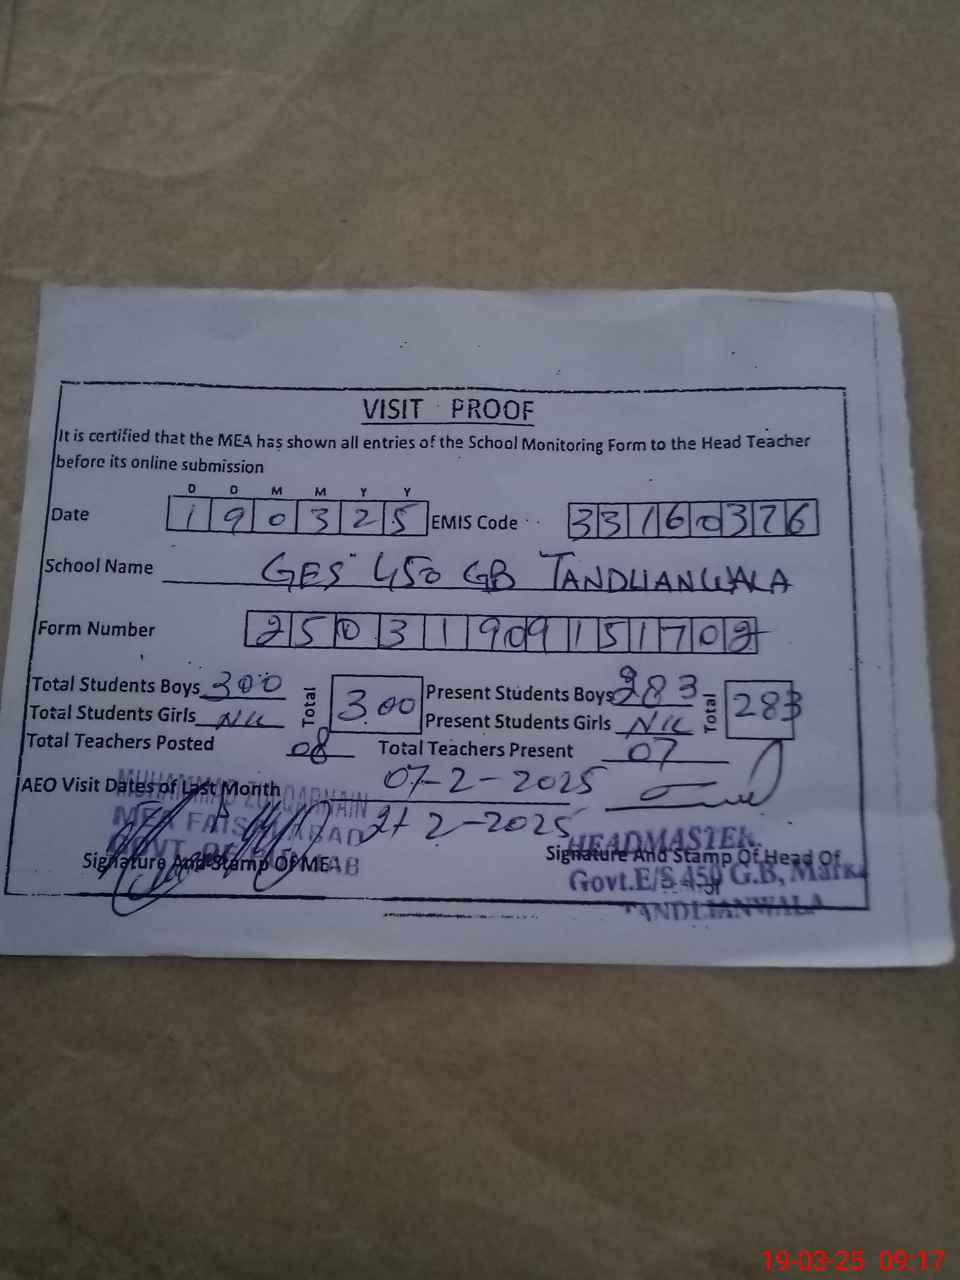 VISIT PROOF
It is certified that the MEA has shown all entries of the School Monitoring Form to the Head Teacher
before its online submission
D D M M Y Y
Date 1 9 0 3 2 5 EMIS Code 3 3 1 6 0 3 7 6
School Name GES 450 GB TANDLIANWALA
Form Number 2 5 0 3 1 9 0 9 1 5 1 7 0 2
Total Students Boys 300 Total 300 Present Students Boys 283 Total 283
Total Students Girls NIL Present Students Girls NIL
Total Teachers Posted 08 Total Teachers Present 07
AEO Visit Dates of Last Month 07-2-2025
2-2025
MUHAMMAD ZULQARNAIN
MEA FAISALABAD
Signature And Stamp Of MEA
HEADMASTER
Signature And Stamp Of Head Of
Govt.E/S 450 G.B, Marka
TANDLIANWALA
19-03-25 09:17